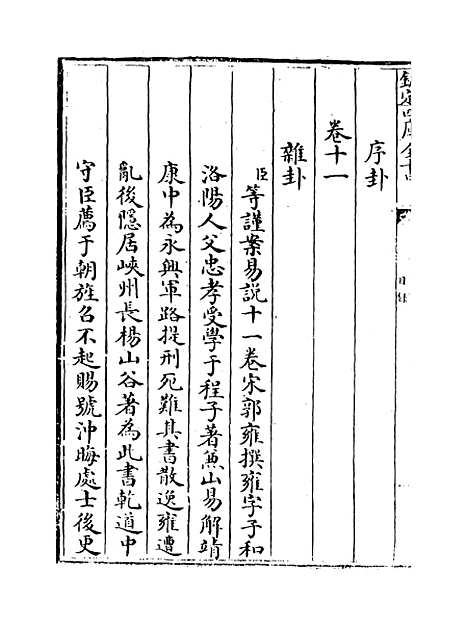 欽定四庫全書
目錄
序卦
卷十一
雜卦
臣等謹案易説十一卷宋郭雍撰雍字子和
洛陽人父忠孝受學于程子著兼山易解靖
康中為永興軍路提刑死難其書散逸雍遭
亂後隱居峽州長楊山谷著為此書乾道中
守臣薦于朝旌召不起賜號沖晦處士後更